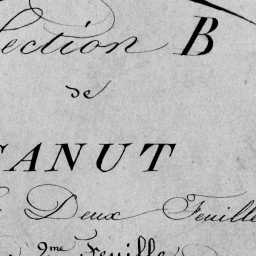 ection B
de
ANUT
Deux Feuille
2me Feuille